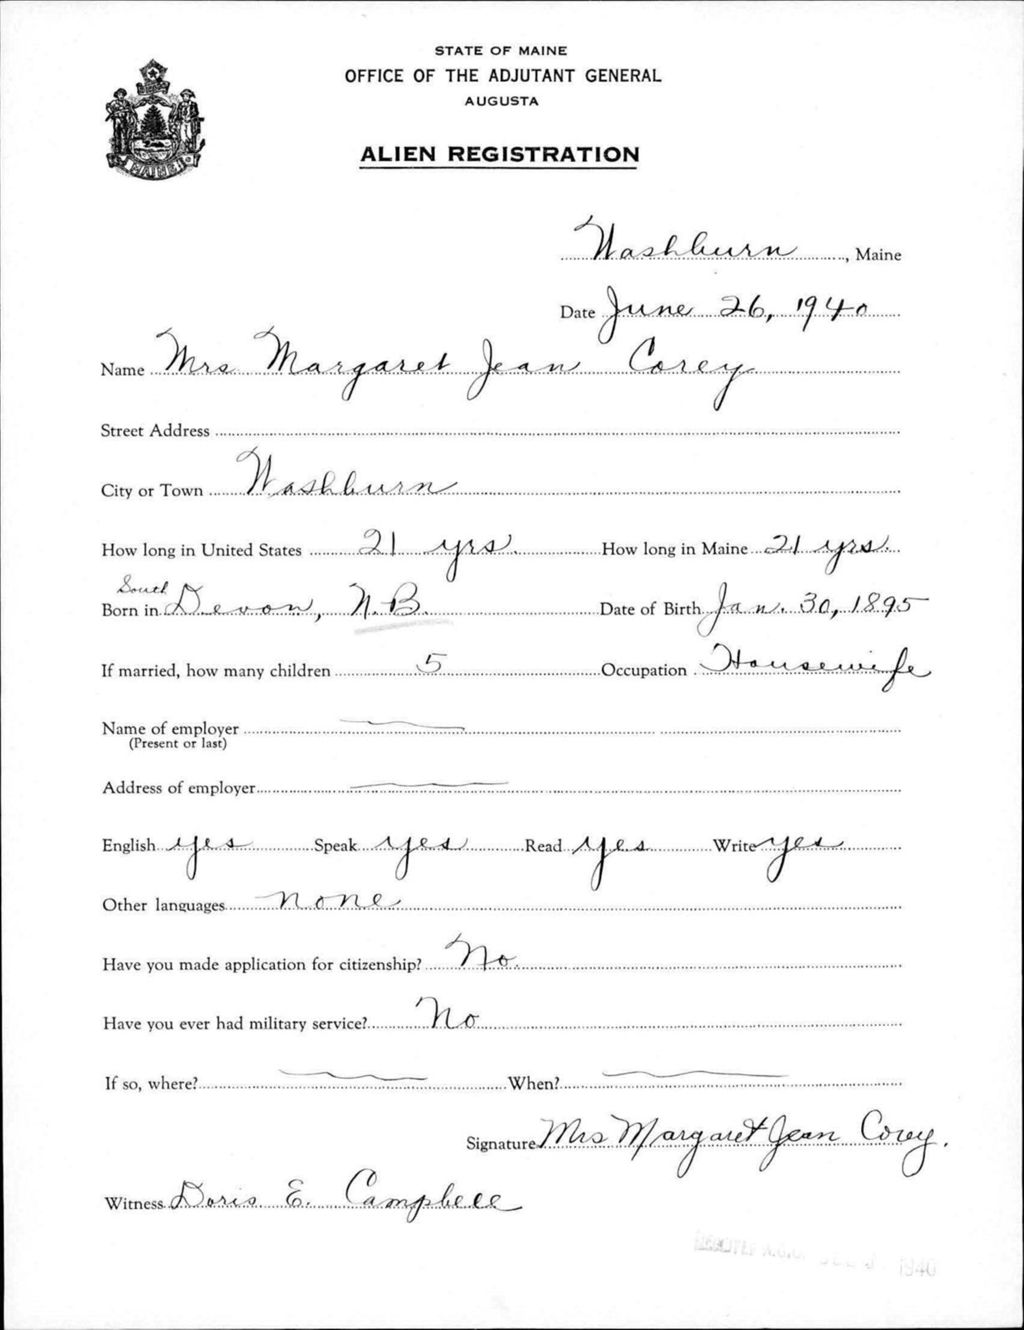 STATE OF MAINE
OFFICE OF THE ADJUTANT GENERAL
AUGUSTA
MAINE
ALIEN REGISTRATION
Washburn, Maine
Date June 26, 1940
Name Mrs Margaret Jean Corey
Street Address
City or Town Washburn
How long in United States 21 yrs. How long in Maine 21 yrs.
South
Born in Devon, N.B. Date of Birth Jan. 30, 1895
If married, how many children 5 Occupation Housewife
Name of employer
(Present or last)
Address of employer
English yes Speak yes Read yes Write yes
Other languages none
Have you made application for citizenship? No.
Have you ever had military service? No
If so, where? When?
Signature Mrs Margaret Jean Corey.
Witness Doris E. Campbell
1940